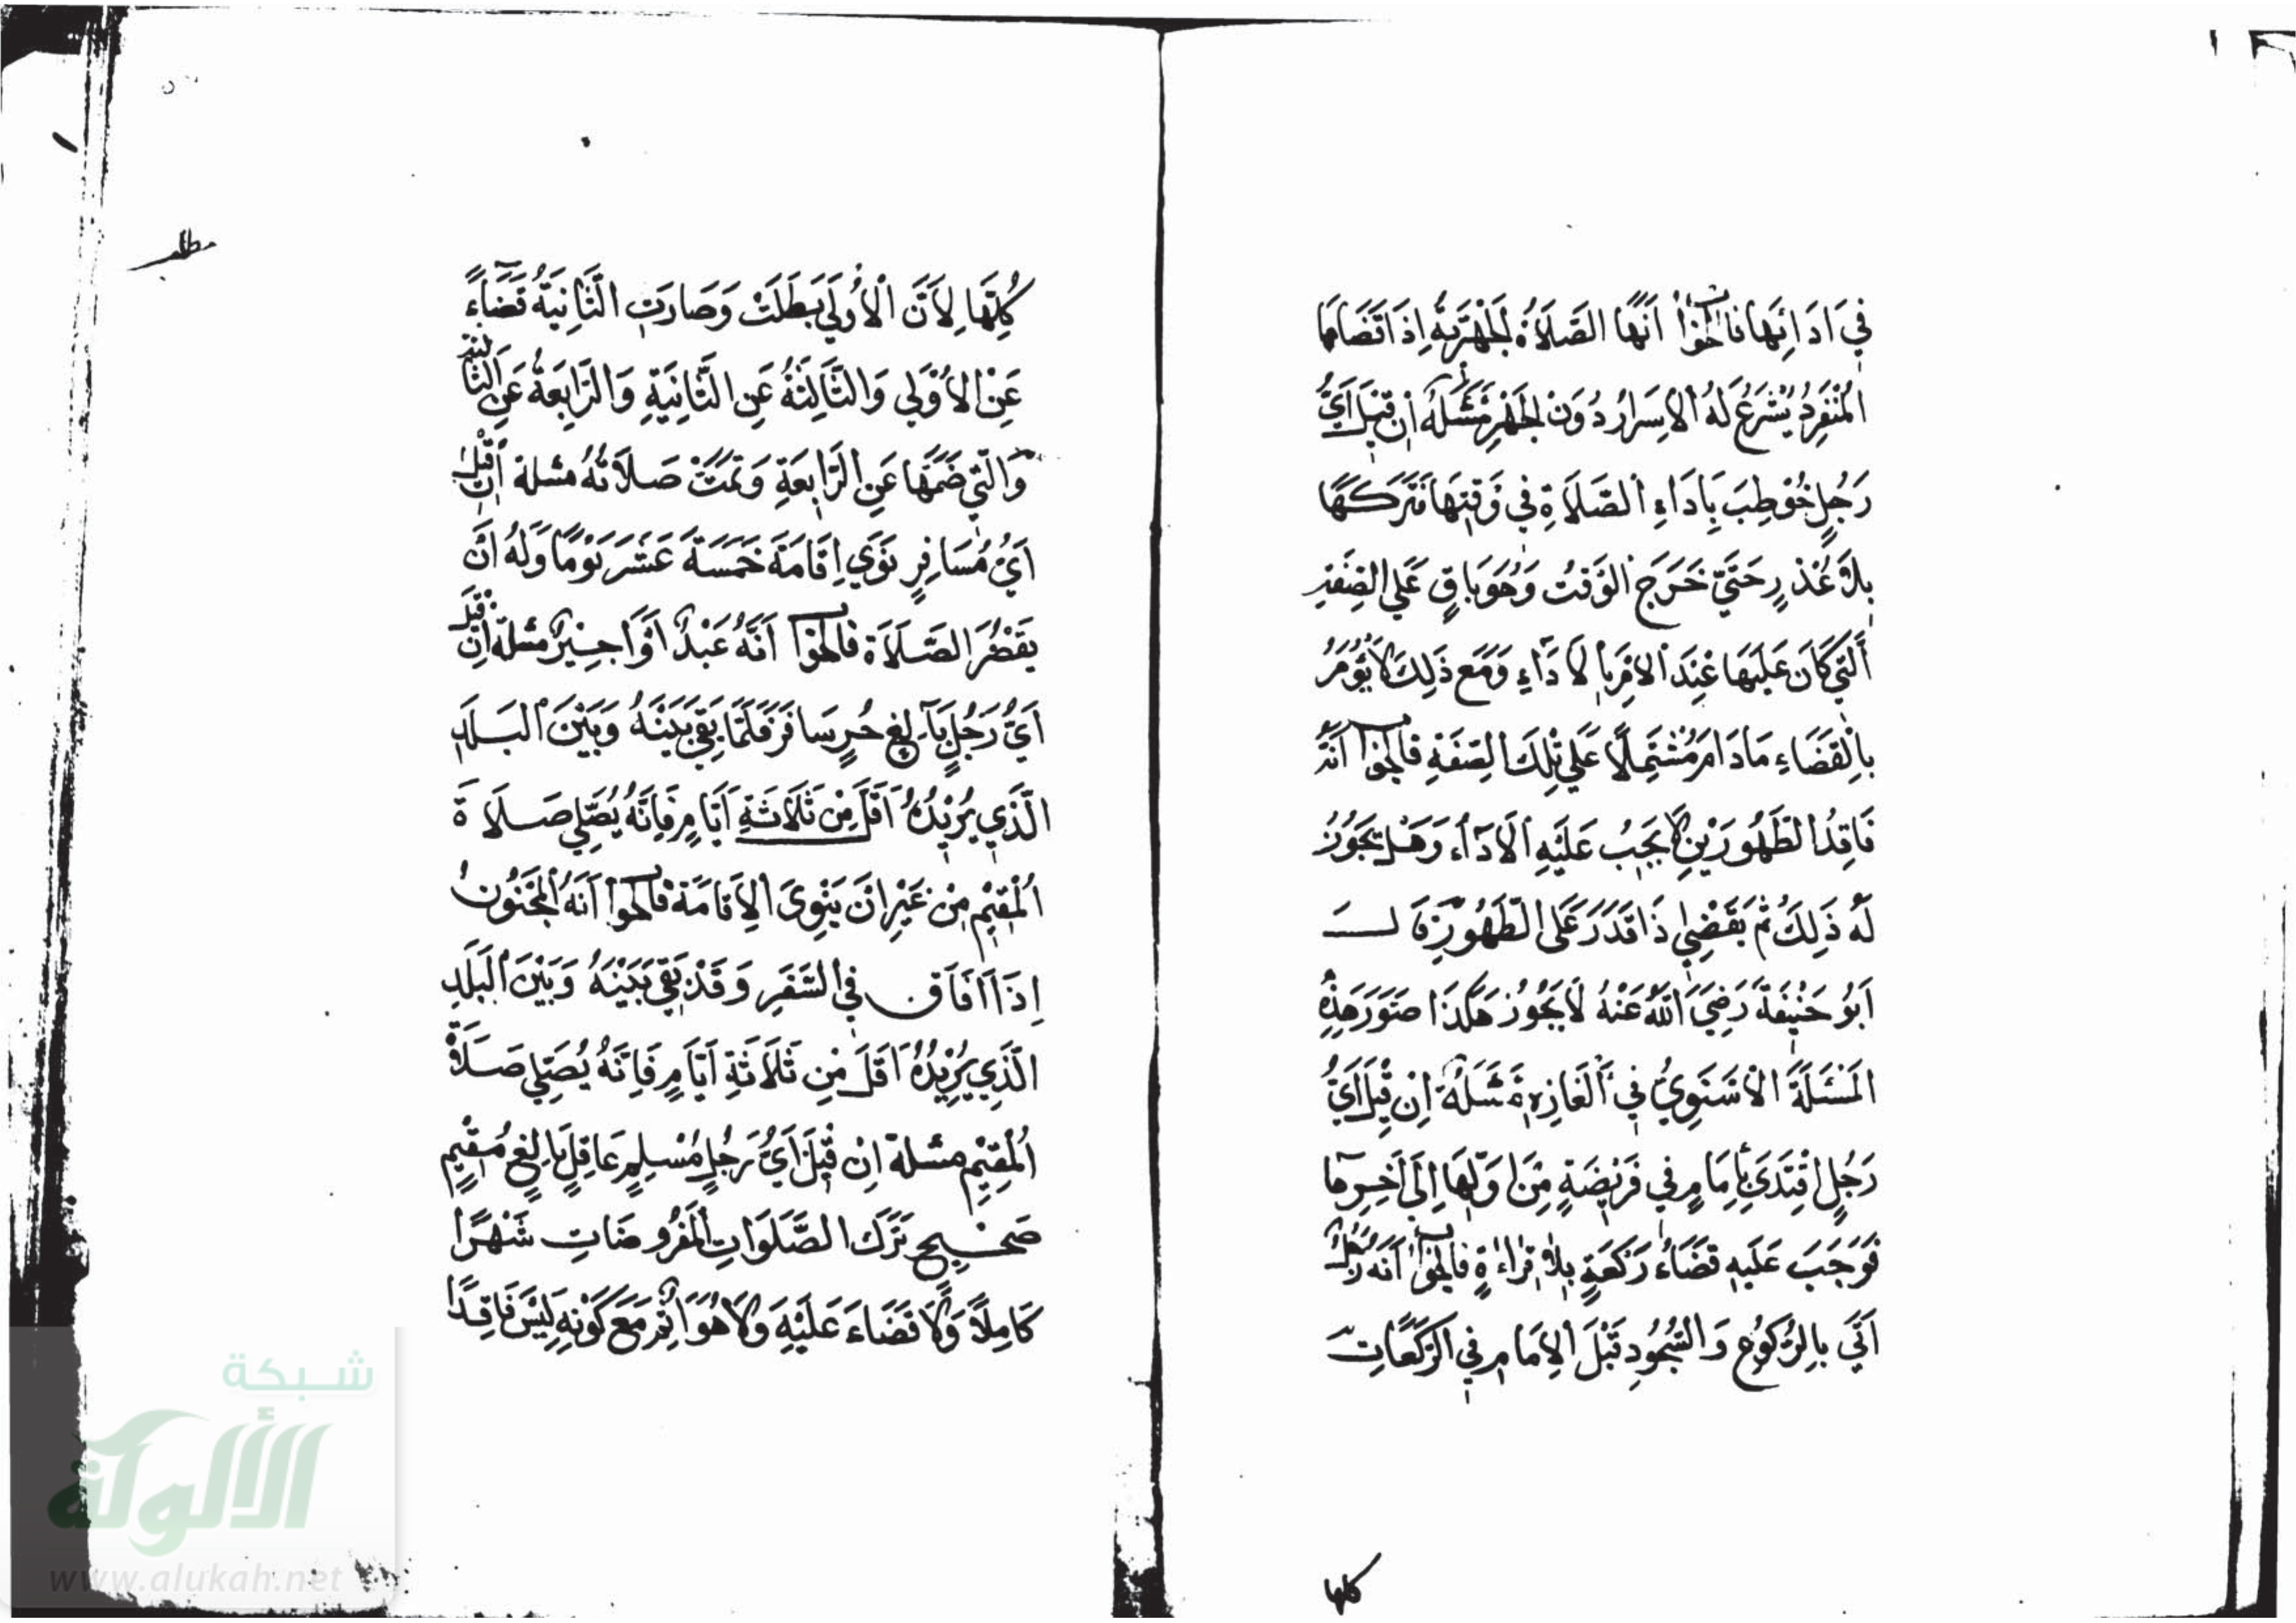 فِي اَدَائِهَا فَالْجَوَابُ اَنَّهَا الصَّلَاةُ الجَهْرِيَّةُ اِذَا قَضَاهَا
المُنْفَرِدُ يُشْرَعُ لَهُ الاِسْرَارُ دُوَنْ الجَهْرِ مَسْئَلَةٌ اِنْ قِيْلَ اَيُّ
رَجُلٍ خُوْطِبَ بِاَدَاءِ الصَّلَاةِ فِي وَقْتِهَا فَتَرَكَهَا
بِلَا عُذْرٍ حَتَّي خَرَجَ الوَقْتُ وَهُوَ بَاقٍ عَلَي الصِّفَةِ
اَلَّتِي كَانَ عَلَيْهَا عِنْدَ الاَمْرِ بِالاَدَاءِ وَمَعَ ذَلِكَ لَا يُؤْمَرُ
بِالْقَضَاءِ مَا دَامَ مُشْتَمِلًا عَلَي تِلِكَ الصِّفَةِ فالجواب اَنَّهُ
فَاقِدُ الطَّهُورَيْنِ لَا يَجِبُ عَلَيْهِ الاَدَاءُ وَهَلْ يَجُوزُ
لَهُ ذَلِكَ ثُمَّ يَقْضِي اِذَا قَدَرَ عَلَى الطَّهُورَيْنِ قَالَ
اَبُو حَنِيْفَةَ رَضِيَ اللّٰهُ عَنْهُ لَا يَجُوُزُ هَكَذَا صَوَّرَ هَذِهِ
المَسْئَلَةَ الاَسْنَوِيُّ فِي اَلْغَازِهِ مَسْئَلَةٌ اِنْ قِيْلَ اَيُّ
رَجُلٍ اقْتَدَى بِاِمَامٍ فِي فَرِيْضَةٍ مِنْ اَوَّلِهَا اِلَى آخِرِهَا
فَوَجَبَ عَلَيْهِ قَضَاءُ رَكْعَةٍ بِلَا قِرَاءَةٍ فالجواب اَنَّهُ رَجُلٌ
اَتَي بِالرُّكُوْعِ وَالسُّجُودِ قَبْلَ الاِمَامِ فِي الرَّكَعَاتِ
كلها
مطلب
كُلِّهَا لِاَنَّ الْاُوْلَي بَطَلَتْ وَصَارَتِ الثَّانِيَةُ قَضَاءً
عَنْ الاُوْلَي وَالثَّالِثَةُ عَنِ الثَّانِيَةِ وَالرَّابِعَةُ عَنِ الثَّالِثَةِ
وَالَّتِي ضَمَّهَا عَنِ الرَّابِعَةِ وَتَمَّتْ صَلَاتُهُ مسئلة اِنْ قِيْلَ
اَيُّ مُسَافِرٍ نَوَي اِقَامَةَ خَمْسَةَ عَشَرَ يَوْمًا وَلَهُ اَنْ
يَقْصُرَ الصَّلَاةَ فالجواب اَنَّهُ عَبْدٌ اَوْ اَجِيْرٌ مسئلة اِنْ قِيْلَ
اَيُّ رَجُلٍ بَالِغٍ حُرٍ سَافَرَ فَلَمَّا بَقِيَ بَيْنَهُ وَبَيْنَ البَلَدِ
الَّذِي يُرِيْدُهُ اَقَلَّ مِنْ ثَلَاثَةِ اَيَّامٍ فَاِنَّهُ يُصَلِّي صَلَاةَ
الْمُقِيْمِ مِنْ غَيْرِ اَنْ يَنْوِيَ الاِقَامَةَ فالجواب اَنَّهُ الْمَجْنُونُ
اِذَا اَفَاقَ فِي السَّفَرِ وَقَدْ بَقِيَ بَيْنَهُ وَبَيْنَ الْبَلَدِ
الَّذِي يُرِيْدُهُ اَقَلَّ مِنْ ثَلَاثَةِ اَيَّامٍ فَاِنَّهُ يُصَلِّي صَلَاةَ
الْمُقِيْمِ مسئلة اِنْ قِيْلَ اَيُّ رَجُلٍ مُسْلِمٍ عَاقِلٍ بَالِغٍ مُقِيْمٍ
صَحِيْحٍ تَرَكَ الصَّلَوَاتِ الْمَفْرُوضَاتِ شَهْرًا
كَامِلًا وَلَا قَضَاءَ عَلَيْهِ وَلَا هُوَ اَثِمٌ مَعَ كَوْنِهِ لَيْسَ فَاقِدًا
شبكة
الألوكة
www.alukah.net